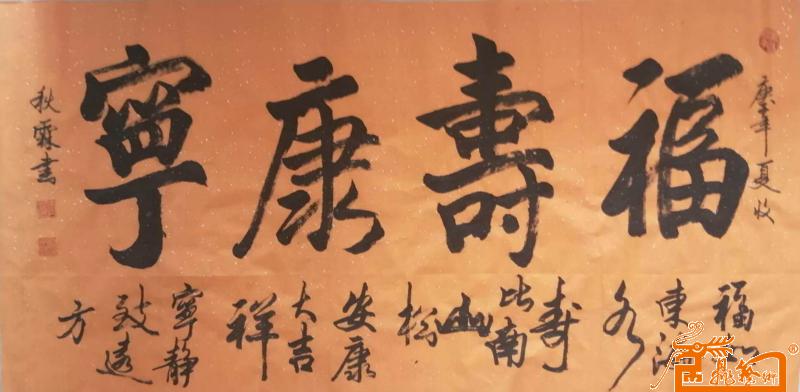 庚
夏
福壽康寧
福如
東海
水
寿
比南
山
松
安康
大吉
祥
寧静
致遠
方
秋霖書